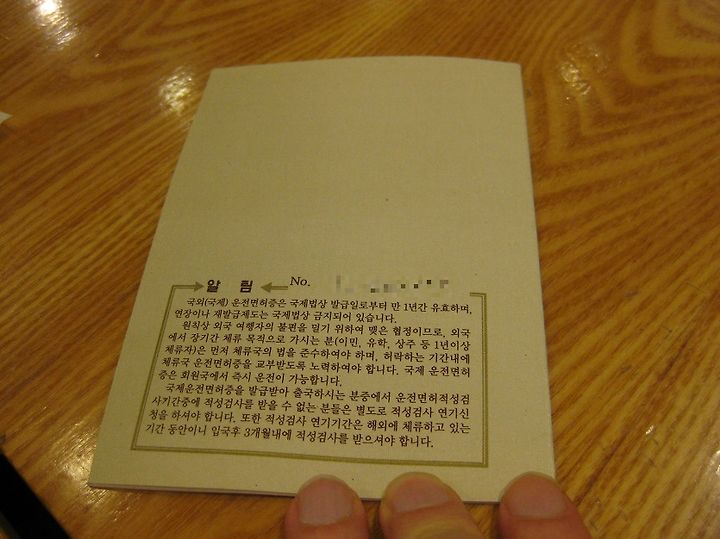 알 림
No.
국외(국제) 운전면허증은 국제법상 발급일로부터 만 1년간 유효하며,
연장이나 재발급제도는 국제법상 금지되어 있습니다.
원칙상 외국 여행자의 불편을 덜기 위하여 맺은 협정이므로, 외국
에서 장기간 체류 목적으로 가시는 분(이민, 유학, 상주 등 1년이상
체류자)은 먼저 체류국의 법을 준수하여야 하며, 허락하는 기간내에
체류국 운전면허증을 교부받도록 노력하여야 합니다. 국제 운전면허
증은 회원국에서 즉시 운전이 가능합니다.
국제운전면허증을 발급받아 출국하시는 분중에서 운전면허적성검
사기간중에 적성검사를 받을 수 없는 분들은 별도로 적성검사 연기신
청을 하셔야 합니다. 또한 적성검사 연기기간은 해외에 체류하고 있는
기간 동안이니 입국후 3개월내에 적성검사를 받으셔야 합니다.